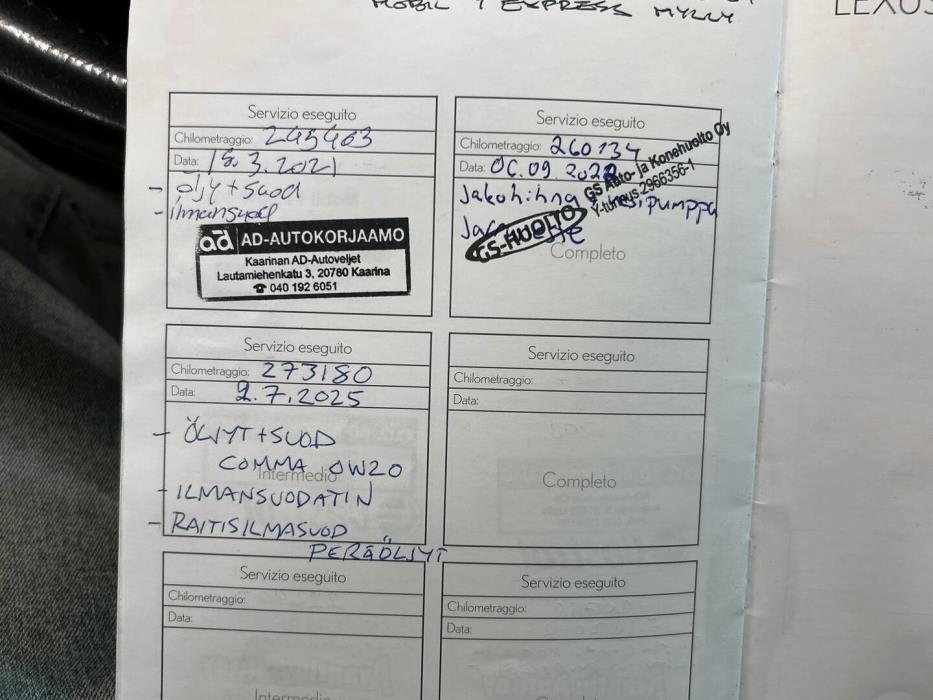 MOBIL 1 EXPRESS MYLLY
LEXUS
Servizio eseguito
Chilometraggio: 245463
Data: 18.3.2021
- öljyt + suod
- ilmansuod
ad AD-AUTOKORJAAMO
Kaarinan AD-Autoveljet
Lautamiehenkatu 3, 20780 Kaarina
☎ 040 192 6051
Servizio eseguito
Chilometraggio: 260134
Data: 06.09.2022
GS Auto- ja Konehuolto Oy
Y-tunnus 2966356-1
Jakohihna vesipumppu
GS-HUOLTO
Completo
Servizio eseguito
Chilometraggio: 273180
Data: 2.7.2025
- ÖLJYT + SUOD
COMMA 0W20
Intermedio
- ILMANSUODATIN
- RAITISILMASUOD
PERÄÖLJYT
Servizio eseguito
Chilometraggio:
Data:
Completo
Servizio eseguito
Chilometraggio:
Data:
Intermedio
Servizio eseguito
Chilometraggio:
Data:
Completo